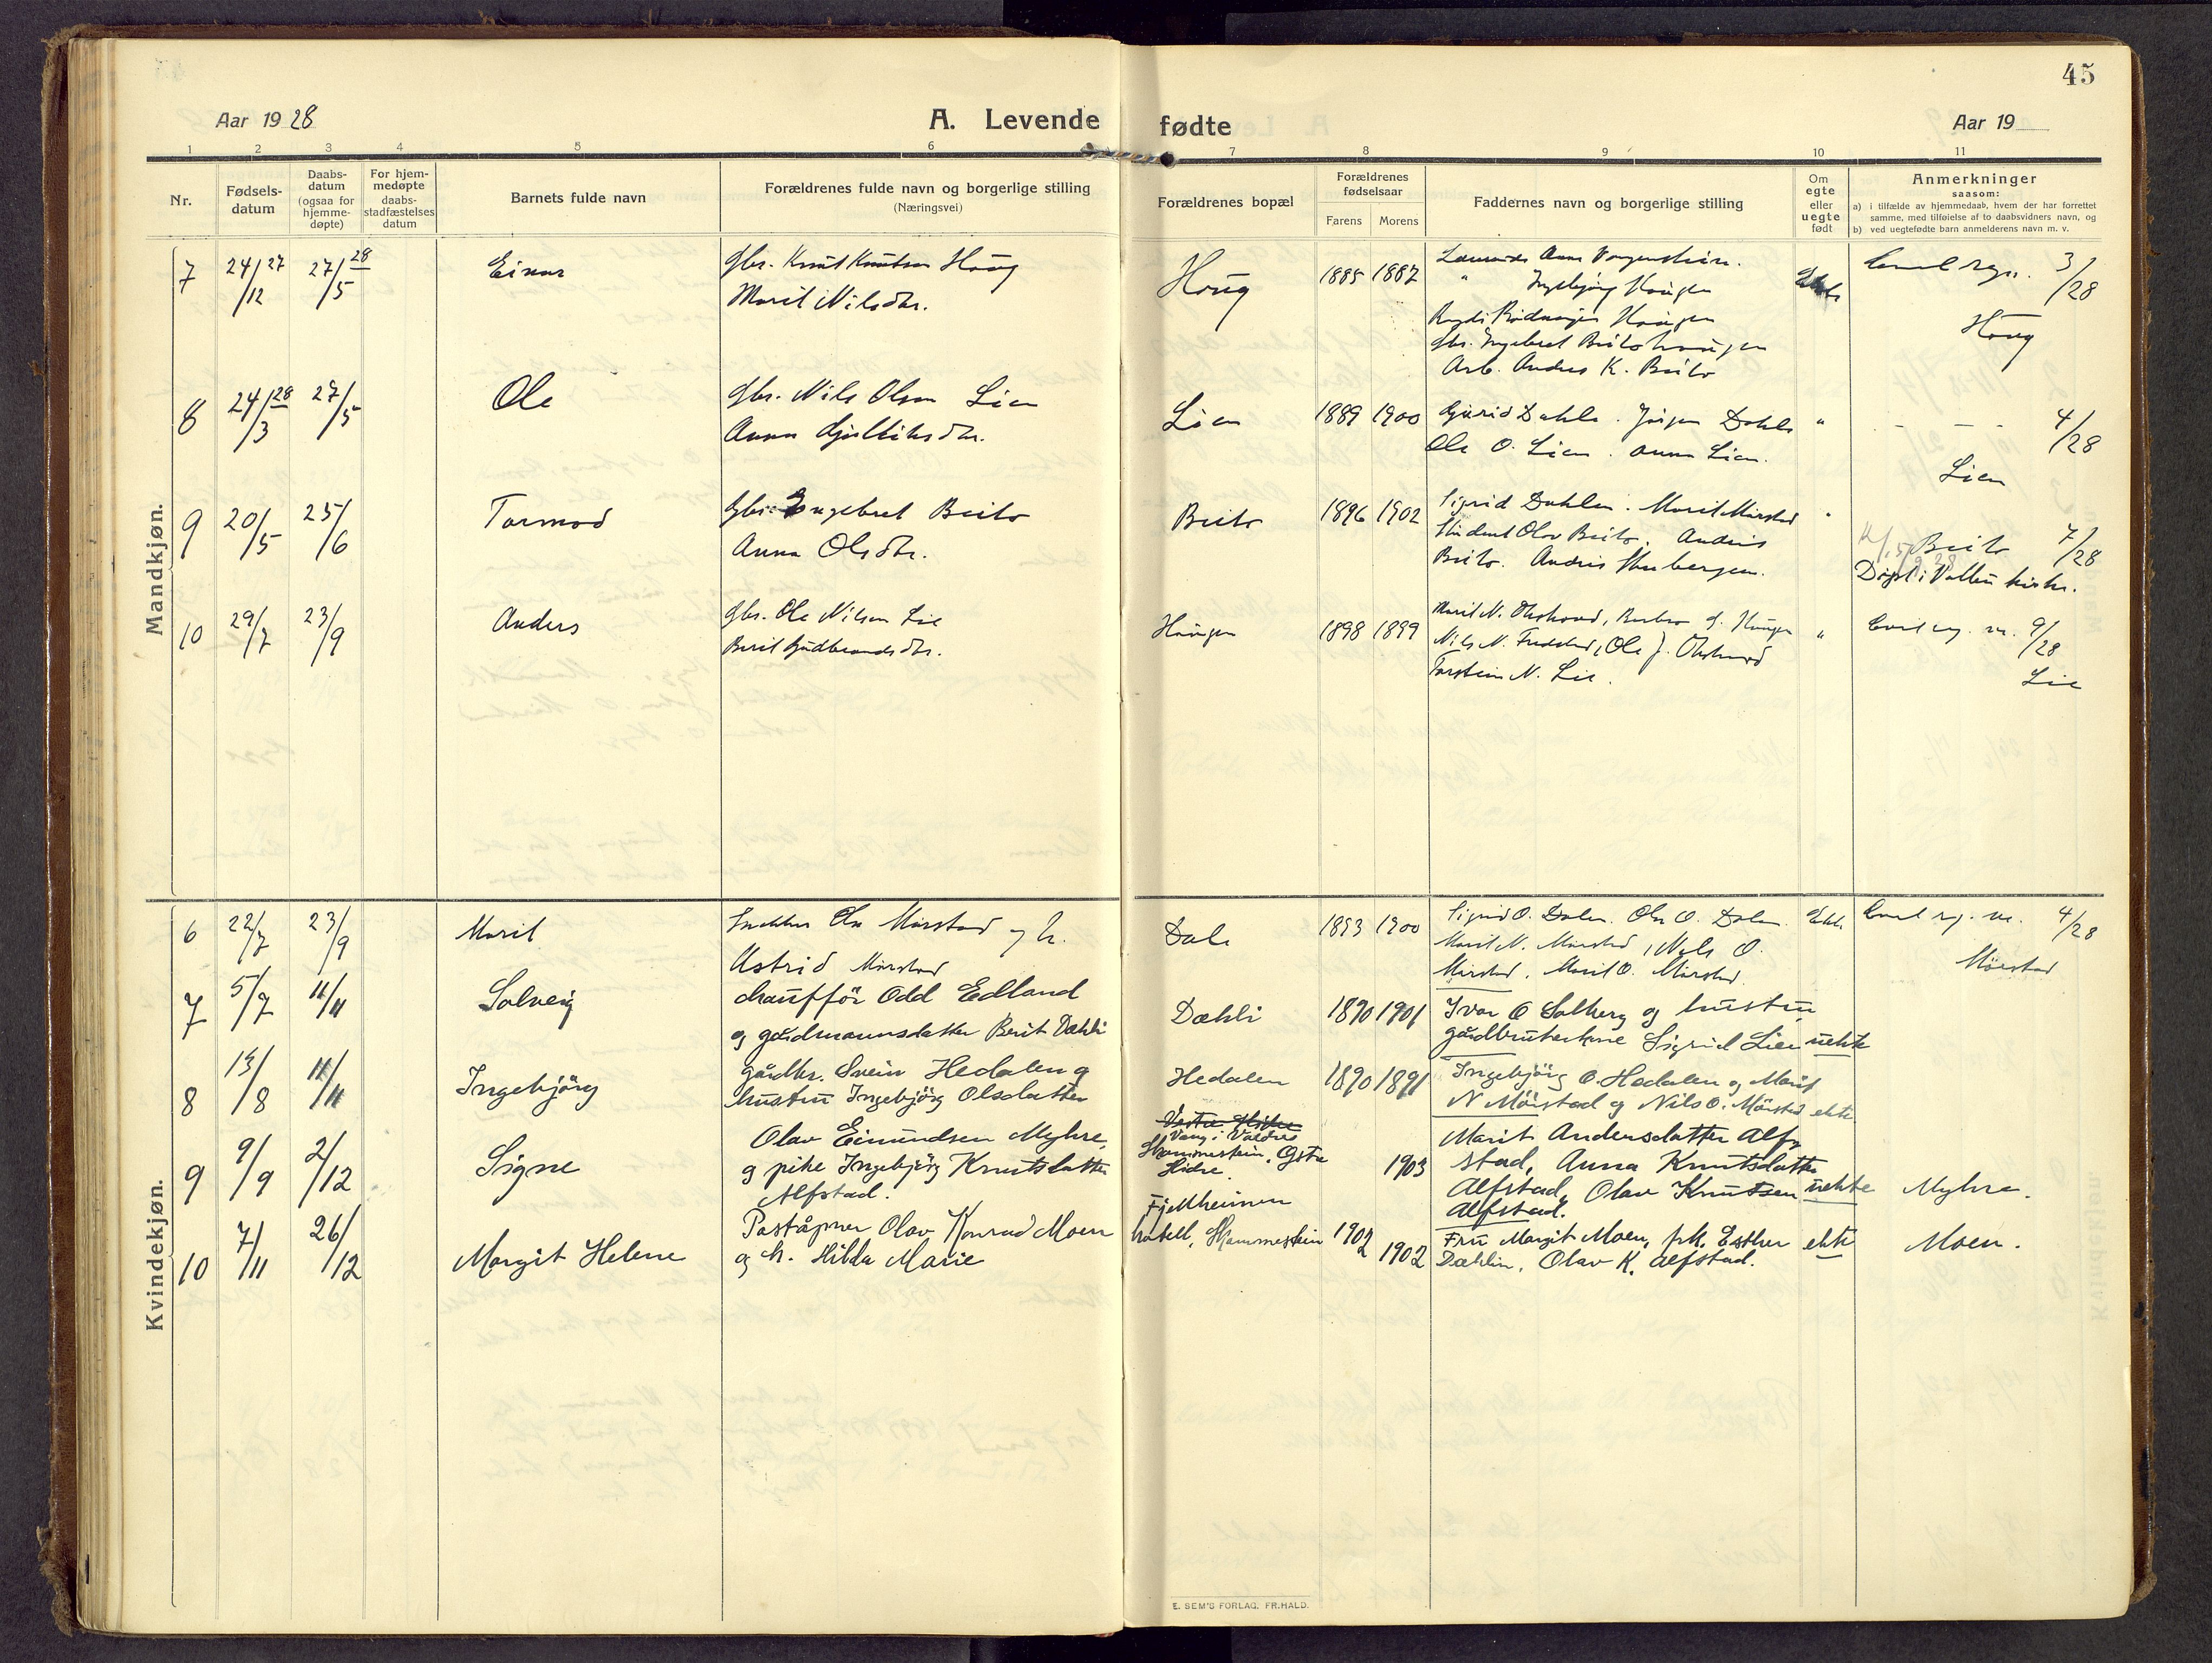 45
Aar 1928
A. Levende fødte
Aar 19
1 2 3 4 5 6 7 8 9 10 11
Nr.
Fødsels-
datum
Daabs-
datum
(ogsaa for
hjemme-
døpte)
For hjem-
medøpte
daabs-
stadfæstelses
datum
Barnets fulde navn
Forældrenes fulde navn og borgerlige stilling
(Næringsvei)
Forældrenes bopæl
Forældrenes
fødselsaar
Farens Morens
Faddernes navn og borgerlige stilling
Om
egte
eller
uegte
født
Anmerkninger
saasom:
a) i tilfælde av hjemmedaab, hvem der har forrettet
samme, med tilføielse av to daabsvidners navn, og
b) ved uegtefødte barn anmelderens navn m. v.
Mandkjøn.
7 24/12 27 27/5 28 Einar
Gbr. Knut Knutsen Houg
Marit Nilsdtr.
Houg 1885 1887
Anna
" Ingebjørg Haugen
Haugen
Gbr. Ingebret Beitohaugen
Arb. Andres K. Beito
3/28
Houg
8 24/3 28 27/5 Ole
Gbr. Nils Olsen Lien
Anna
Lien 1889 1900
Gjurid Dahle. Jørgen Dahle "
Ole O. Lien. Anna Lien.
- - - 4/28
Lien
9 20/5 25/6 Tormod
Gbr. Ingebret Beito
Anna Olsdtr.
Beito 1896 1902
Sigrid Dahlen. Marit Mørstad "
Student Olav Beito. Andris
Beito. Andris
Beito 7/28
Døpt i Volbu kirke.
10 29/7 23/9 Anders
Gbr. Ole Nilsen Lie
Berit Gudbrandsdtr.
Haugen 1898 1899
Marit N. Okshovd, Barbro G. Haugen "
Nils N. Ole J. Okshovd
Torstein N. Lie.
9/28
Lie
Kvindekjøn.
6 22/7 23/9 Marit
Snekker Ola Mørstad og h.
Astrid Mørstad
Dale 1893 1900
Sigrid O. Dalen. Ola O. Dalen. Ekte
Marit N. Mørstad, Nils O.
Mørstad. Marit O. Mørstad.
4/28
Mørstad
7 5/7 11/11 Solveig
chauffør Odd Edland
og gårdmannsdatter Berit Dæhli
Dæhli 1890 1901
Ivar O Solberg og hustru
gårdbrukerkone Sigrid Lien uekte
8 15/8 11/11 Ingebjørg
gårdbr. Svein Hedalen og
hustru Ingebjørg Olsdatter
Hedalen 1890 1891
Ingebjørg O. Hedalen og Marit
N Mørstad og Nils O. Mørstad ekte
9 9/9 2/12 Signe
Olav Eimundsen Myhre,
og pike Ingebjørg Knutsdatter
Alfstad.
Vestre Slidre
Vang i Valdres
Hammerstein, Østre
Slidre
1903
Marit Andersdatter Alf-
stad, Anna Knutsdatter
Alfstad, Olav Knutsen uekte
Alfstad.
Myhre.
10 7/11 26/12 Margit Helene
Poståpner Olav Konrad Moen
og h. Hilda Marie
Fjellheimen
hotell, Hammerstein 1902 1902
Fru Margit Moen, frk. Esther ekte
Dæhlin, Olav K. Alfstad.
Moen.
E. SEM'S FORLAG, FR.HALD.